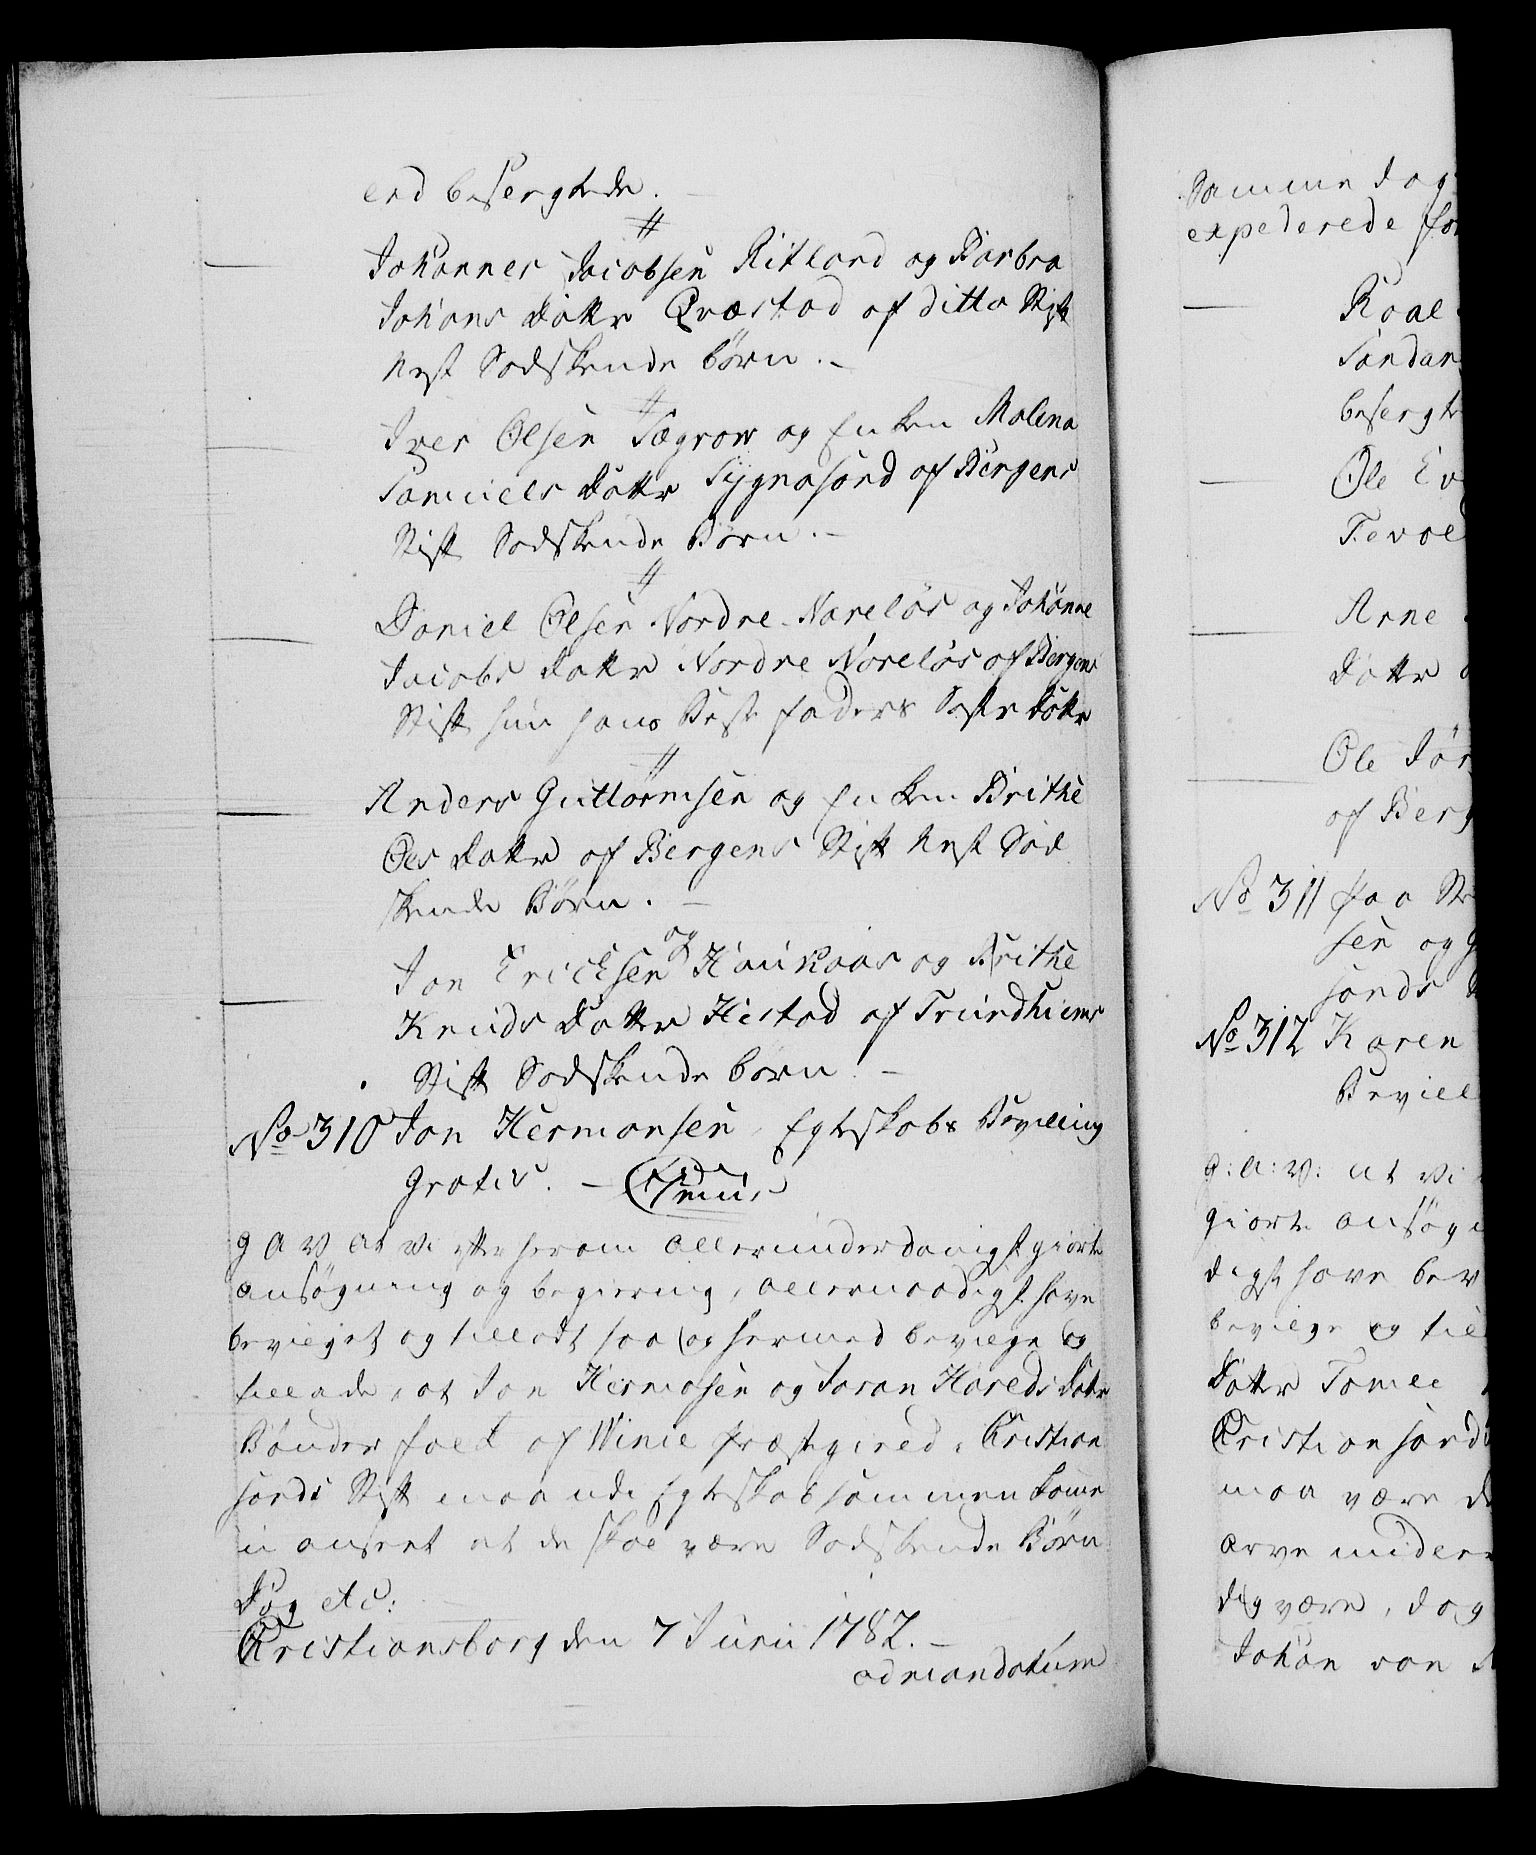 erd besergtede.
Johannes Jacobsen Ritland og Barbra
Johans Dotter Qvæstad af ditto Stift
Nest Sødskende børn.
Iver Olsen Sægrow og Enken Malena
Samuels Dotter Sygnasord af Bergens
Stift Sødskende Børn.
Daniel Olsen Nordre Nareløs og Johanne
Jacobs Datter Nordre Noreløs af Bergens
Stift hun hans Beste faders Søster Dotter
Anders Guttormsen og Enken Brithe
Oles Datter af Bergens Stift Nest Sød
skende Børn.
Jon Ericksen og Haukaas og Brithe
Knuds Datter Hestad af Trundhiems
Stift Sødskende børn.
No 310 Jon Hermansen Egteskabs Bevilling
Gratis.
G A V At Vi efter herom allerunderdanigst giorte
ansøgning og begiering, allernaadigst have
bevilget og tilladt saa og hermed bevilge og
tillade, at Jon Hermosen og Saran Hareds Dotter
Bønder folck af Winie Præstegield i Cristian
sands Stift maa udi Egteskab sammen komme
u anseet at de skal være Sødskende Børn
Dog etc:
Cristiansborg den 7 Junii 1782.
ad mandatum
Samme dag
expederede
Roal
besergte
Ole
Arne
Dotter
Ole
af Berg
No 311 paa
sen og
sands
No 312 Karen
Bevill
G: A: V: At Vi
giorte ansøg
digst have bev
bevilge og till
Dotter
Cristiansand
maa være
arve
dig være, dog
Johan von